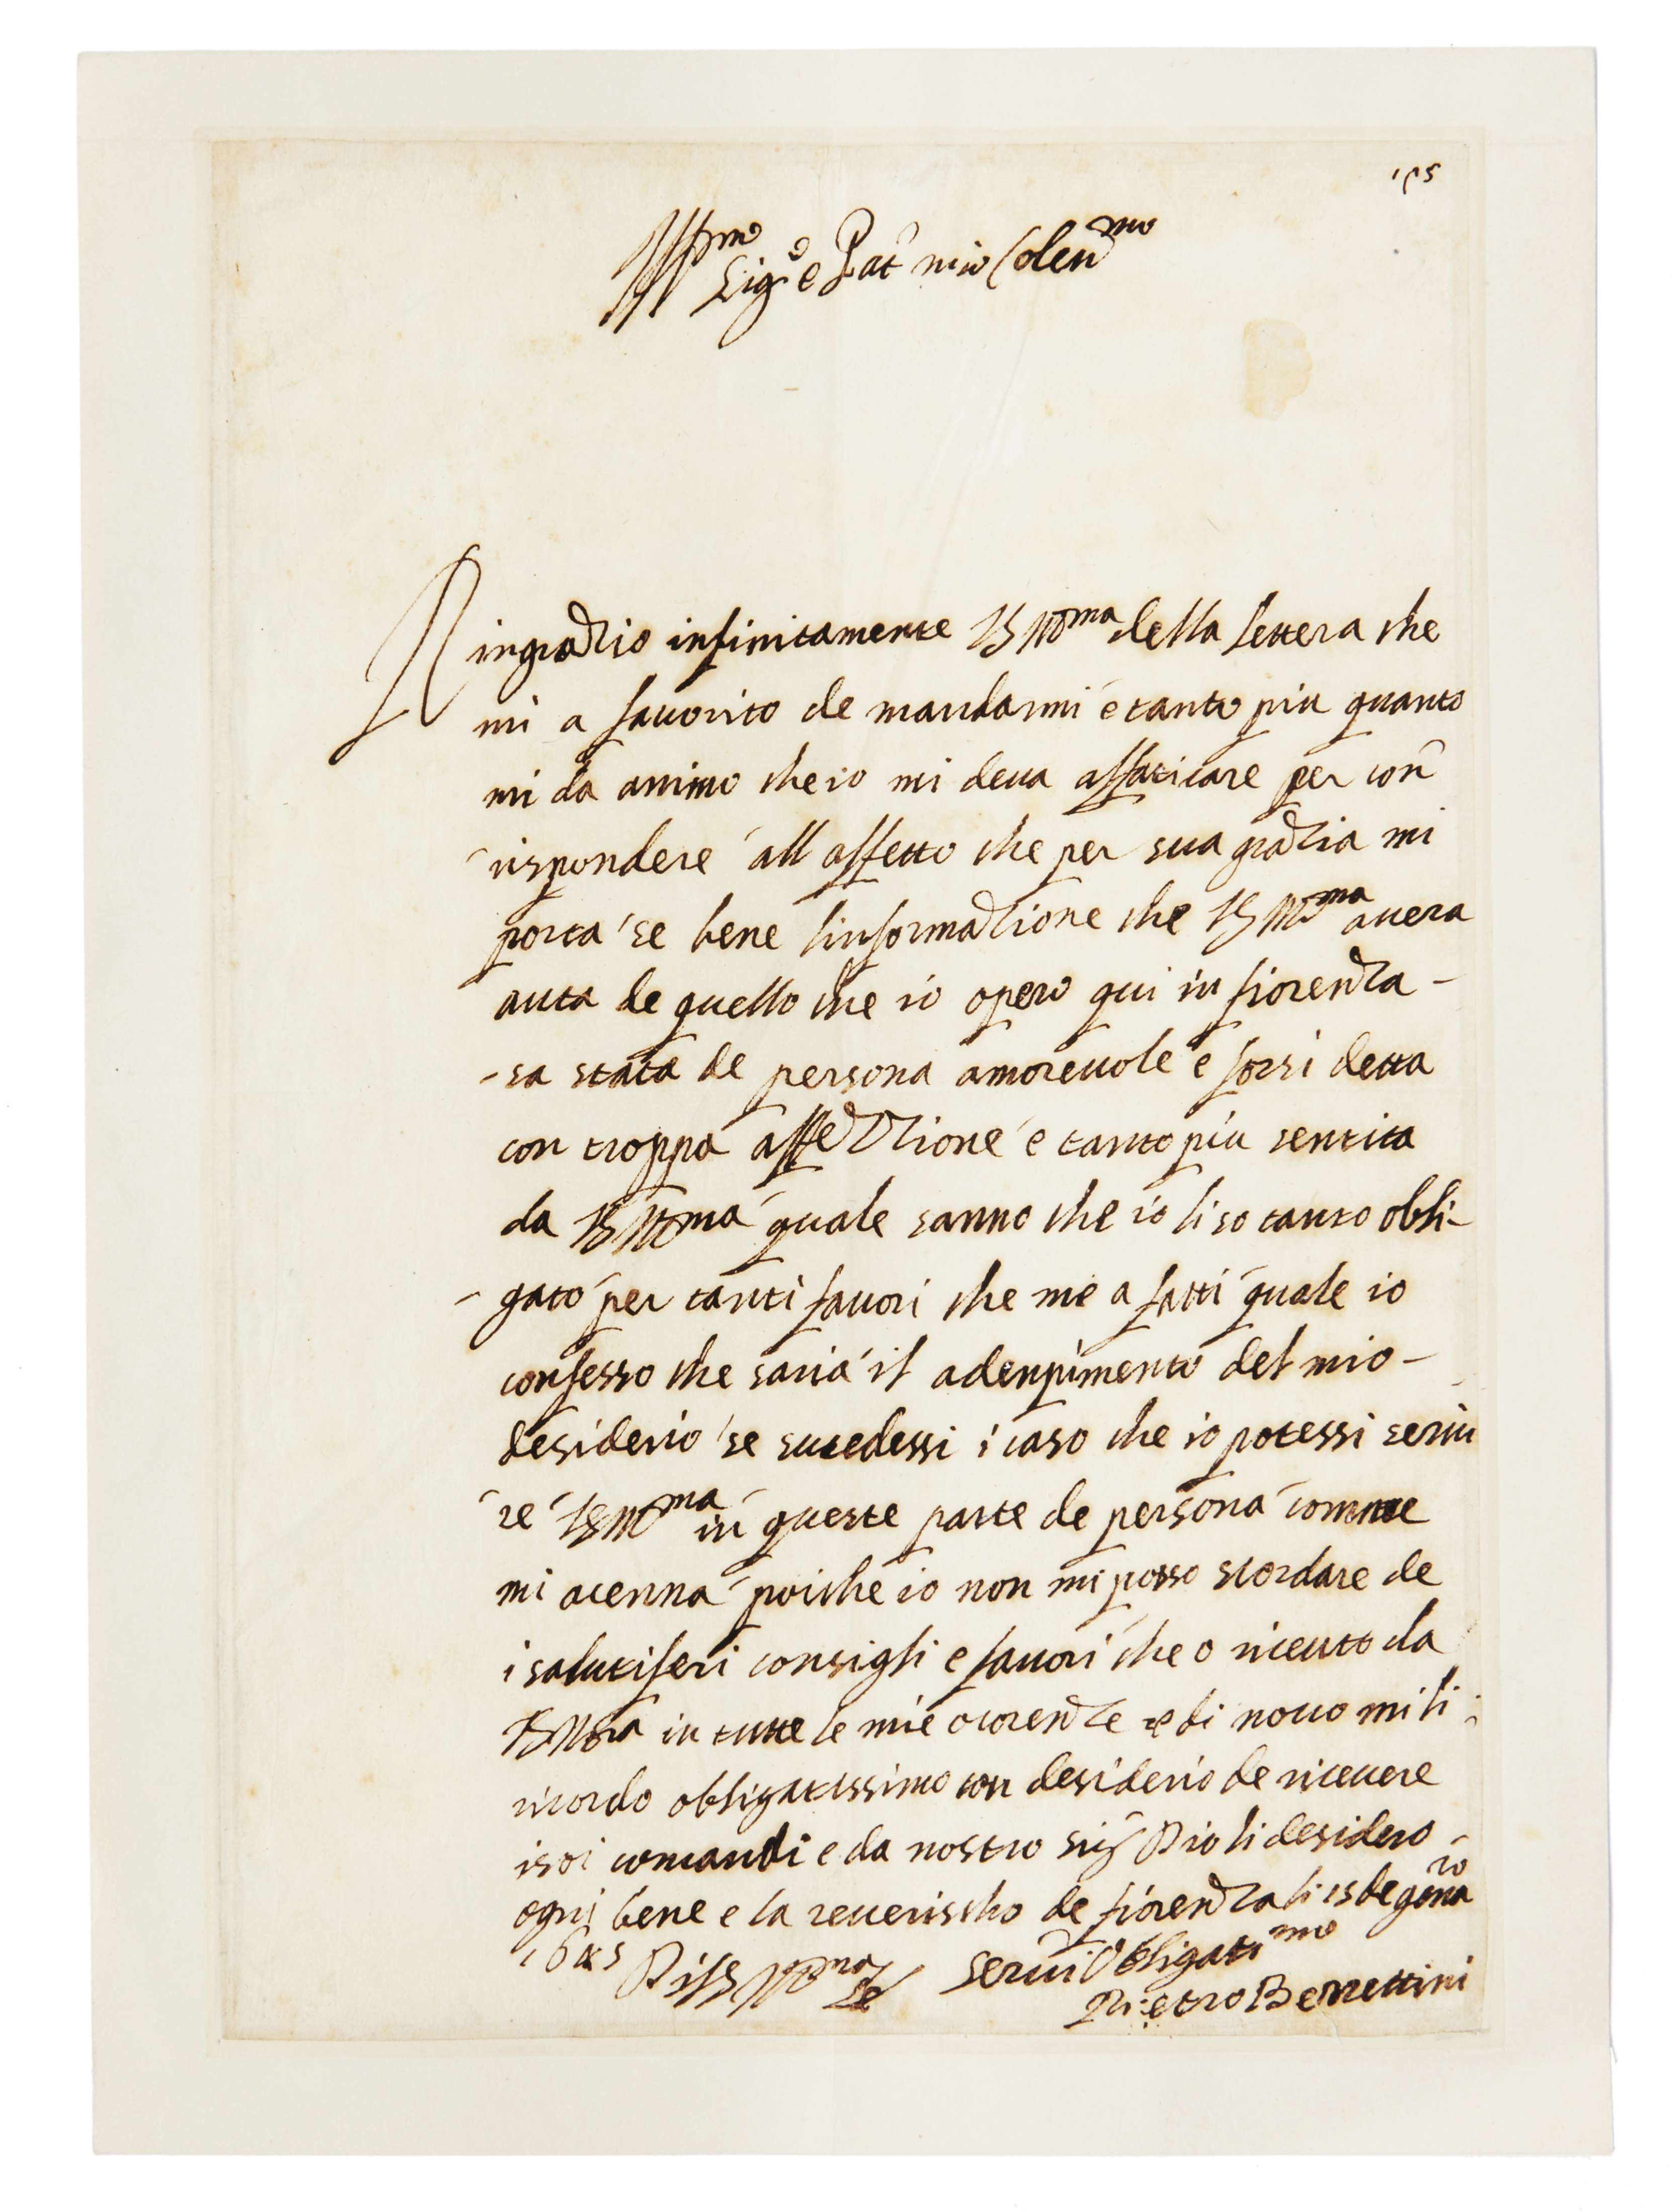 Ill^mo Sig^e e Pat^ mio Colen^mo
Ringrazio infinitamente VS Ill^ma della lettera che
mi a fauorito de mandarmi e tanto piu quanto
mi da animo che io mi deua affaticare per cor
rispondere all affetto che per sua grazia mi
porta se bene linformazione che VS Ill^ma auera
auta de quello che io opero qui in fiorenza -
-sa stata de persona amoreuole e forsi detta
con troppa affezzione e tanto piu sentita
da VS Ill^ma quale sanno che io li so tanto obli-
- gato per tanti fauori che me a fatti quale io
confesso che saria il adenpimento del mio -
desiderio se sucedessi i caso che io potessi seriui
re VS Ill^ma in queste parte de persona comme
mi acenna poiche io non mi posso scordare de
i salutiferi consigli e fauori che o riceuto da
VS Ill^ma in tutte le mie ocorenze e di nouo mi li
ricordo obligatissimo con desiderio de riceuere
i soi comandi e da nostro sig^ Dio li desidero -
ogni bene e la reuerischo de fiorenza li 15 de gena^ro
1645 Di VS Ill^ma Ser^ui Obligati^mo
Pietro Berrettini